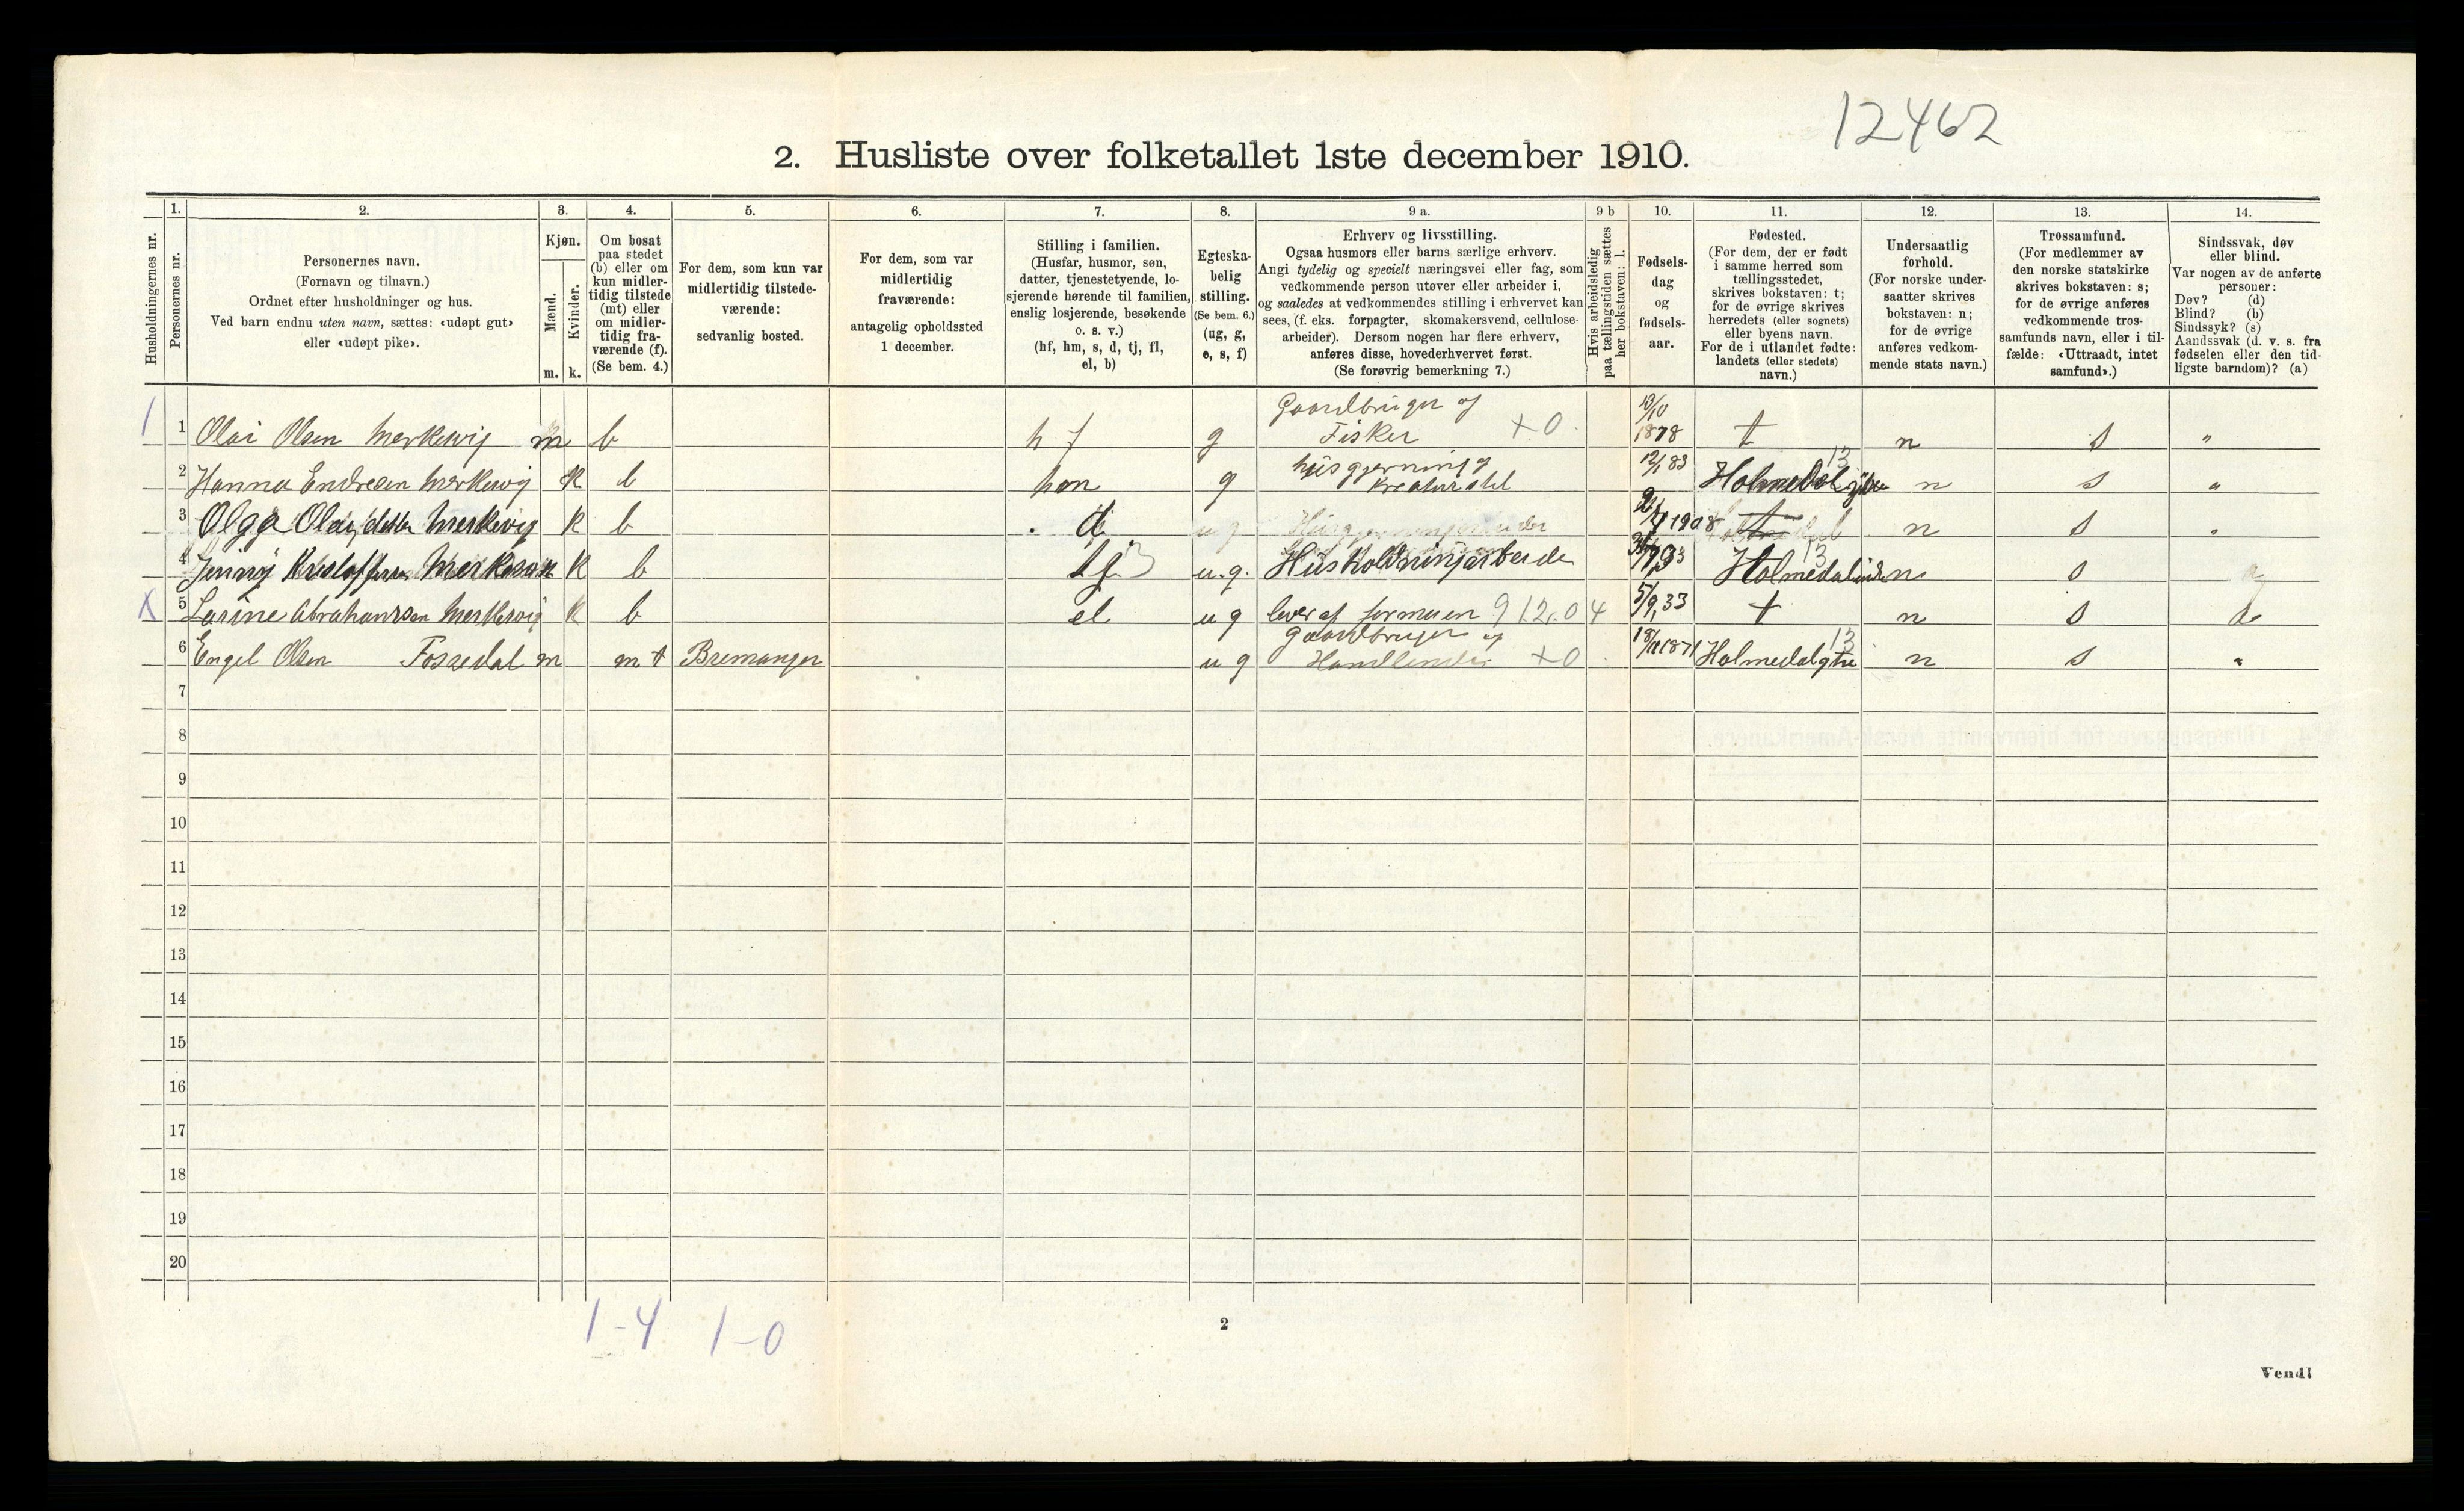 12462
2. Husliste over folketallet 1ste december 1910.
Husholdningernes nr.
1.
Personernes nr.
2.
Personernes navn.
(Fornavn og tilnavn.)
Ordnet efter husholdninger og hus.
Ved barn endnu uten navn, sættes: «udøpt gut»
eller «udøpt pike».
3.
Kjøn.
Mænd.
Kvinder.
m. k.
4.
Om bosat
paa stedet
(b) eller om
kun midler-
tidig tilstede
(mt) eller
om midler-
tidig fra-
værende (f).
(Se bem. 4.)
5.
For dem, som kun var
midlertidig tilstede-
værende:
sedvanlig bosted.
6.
For dem, som var
midlertidig
fraværende:
antagelig opholdssted
1 december.
7.
Stilling i familien.
(Husfar, husmor, søn,
datter, tjenestetyende, lo-
sjerende hørende til familien,
enslig losjerende, besøkende
o. s. v.)
(hf, hm, s, d, tj, fl,
el, b)
8.
Egteska-
belig
stilling.
(Se bem. 6.)
(ug, g,
e, s, f)
9 a.
Erhverv og livsstilling.
Ogsaa husmors eller barns særlige erhverv.
Angi tydelig og specielt næringsvei eller fag, som
vedkommende person utøver eller arbeider i,
og saaledes at vedkommendes stilling i erhvervet kan
sees, (f. eks. forpagter, skomakersvend, cellulose-
arbeider). Dersom nogen har flere erhverv,
anføres disse, hovederhvervet først.
(Se forøvrig bemerkning 7.)
9 b
Hvis arbeidsledig
paa tællingstiden sættes
her bokstaven: l.
10.
Fødsels-
dag
og
fødsels-
aar.
11.
Fødested.
(For dem, der er født
i samme herred som
tællingsstedet,
skrives bokstaven: t;
for de øvrige skrives
herredets (eller sognets)
eller byens navn.
For de i utlandet fødte:
landets (eller stedets)
navn.)
12.
Undersaatlig
forhold.
(For norske under-
saatter skrives
bokstaven: n;
for de øvrige
anføres vedkom-
mende stats navn.)
13.
Trossamfund.
(For medlemmer av
den norske statskirke
skrives bokstaven: s;
for de øvrige anføres
vedkommende tros-
samfunds navn, eller i til-
fælde: «Uttraadt, intet
samfund».)
14.
Sindssvak, døv
eller blind.
Var nogen av de anførte
personer:
Døv? (d)
Blind? (b)
Sindssyk? (s)
Aandssvak (d. v. s. fra
fødselen eller den tid-
ligste barndom)? (a)
1 Gaardbruger og 13/10
1 Olai Olsen Merkevig m b hf g Fisker +0 1878 t n s "
husgjerning og 12/1 83 13
2 Hanna Endresen Merkevig k b hm g kreaturstel Holmedal n s "
3 Olga Merkevig k b d 1908 t n s "
4 Jenny k b tj u.g. Husholdningarbeide 93 13 Holmedal n s
X 5 Larine Abrahamsen Merkevig k b el ug lever af formuen 912.04 5/9 33 t n s
Gaardbruger og 13
6 Engel Olsen Fossedal m mt Bremanger ug Handlende +0 1871 Holmedal n s "
7
8
9
10
11
12
13
14
15
16
17
18
19
20
1-4 1-0
2
Vend!